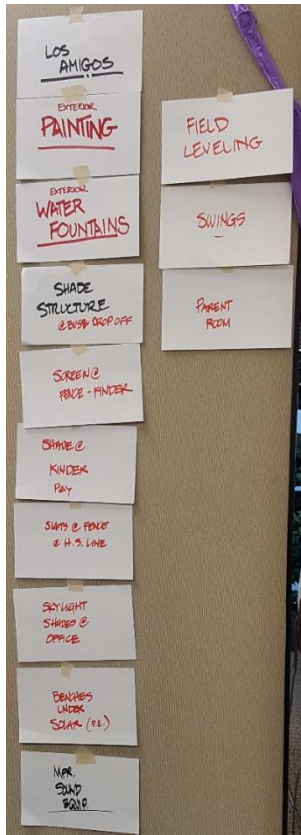 LOS
AMIGOS
EXTERIOR
PAINTING
EXTERIOR
WATER
FOUNTAINS
SHADE
STRUCTURE
@ BUS & DROP OFF
SCREEN @
FENCE - KINDER
SHADE @
KINDER
PLAY
SLATS @ FENCE
@ H.S. LINE
SKYLIGHT
SHADES @
OFFICE
BENCHES
UNDER
SOLAR (P.E.)
MPR.
SOUND
EQUIP.
FIELD
LEVELING
SWINGS
PARENT
ROOM